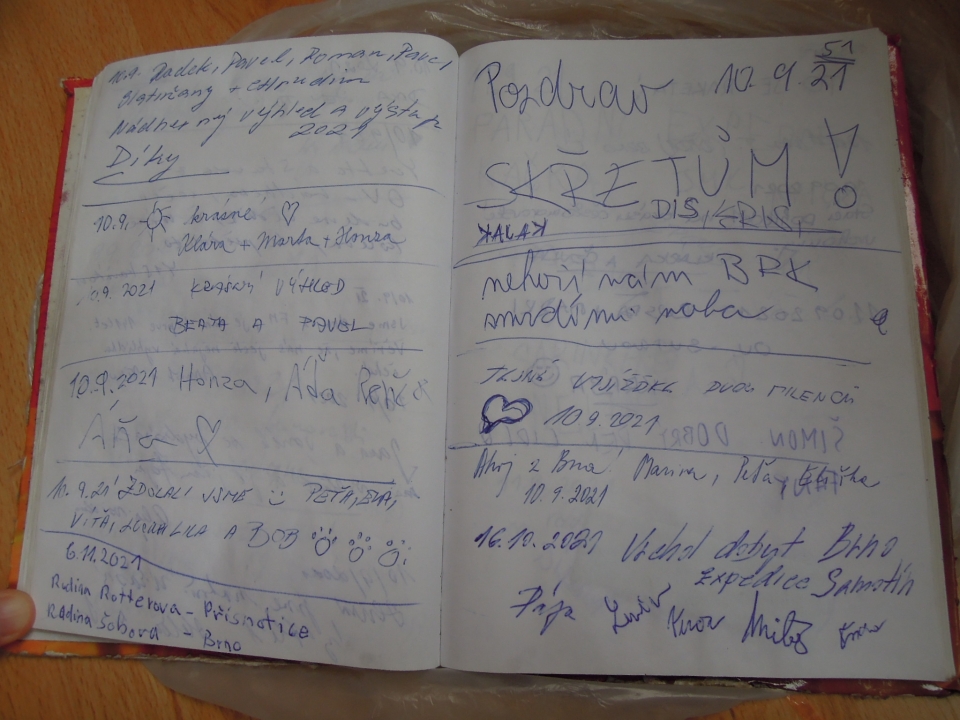 10.9. Radek, Pavel, Roman, Pavel,
Slatiňany + Chrudim
Nádherný výhled a výstup
2021
Díky
10.9. krásné ♡
Klára + Marta + Honza
10.9. 2021 KRÁSNÝ VÝHLED
BEATA A PAVEL
10.9.2021 Honza, Áďa
♡
11.9.21 ZDOLALI JSME PEŤA, ELA,
VÍŤA, A BOB
6.11.2021
Radina Rotterova - Přísnotice
Radina Šobora - Brno
51
Pozdrav 10.9.21
SKŘETŮM!
DIS, KRIS,
nehoří nám BRK
smrdíme
VYJÍŽĎKA DVOU MILENCŮ
10.9.2021
Ahoj z Brna! Peťa, Eliška
10.9.2021
16.10.2021 Vrchol dobyt Brno
Expedice Samotín
Pája